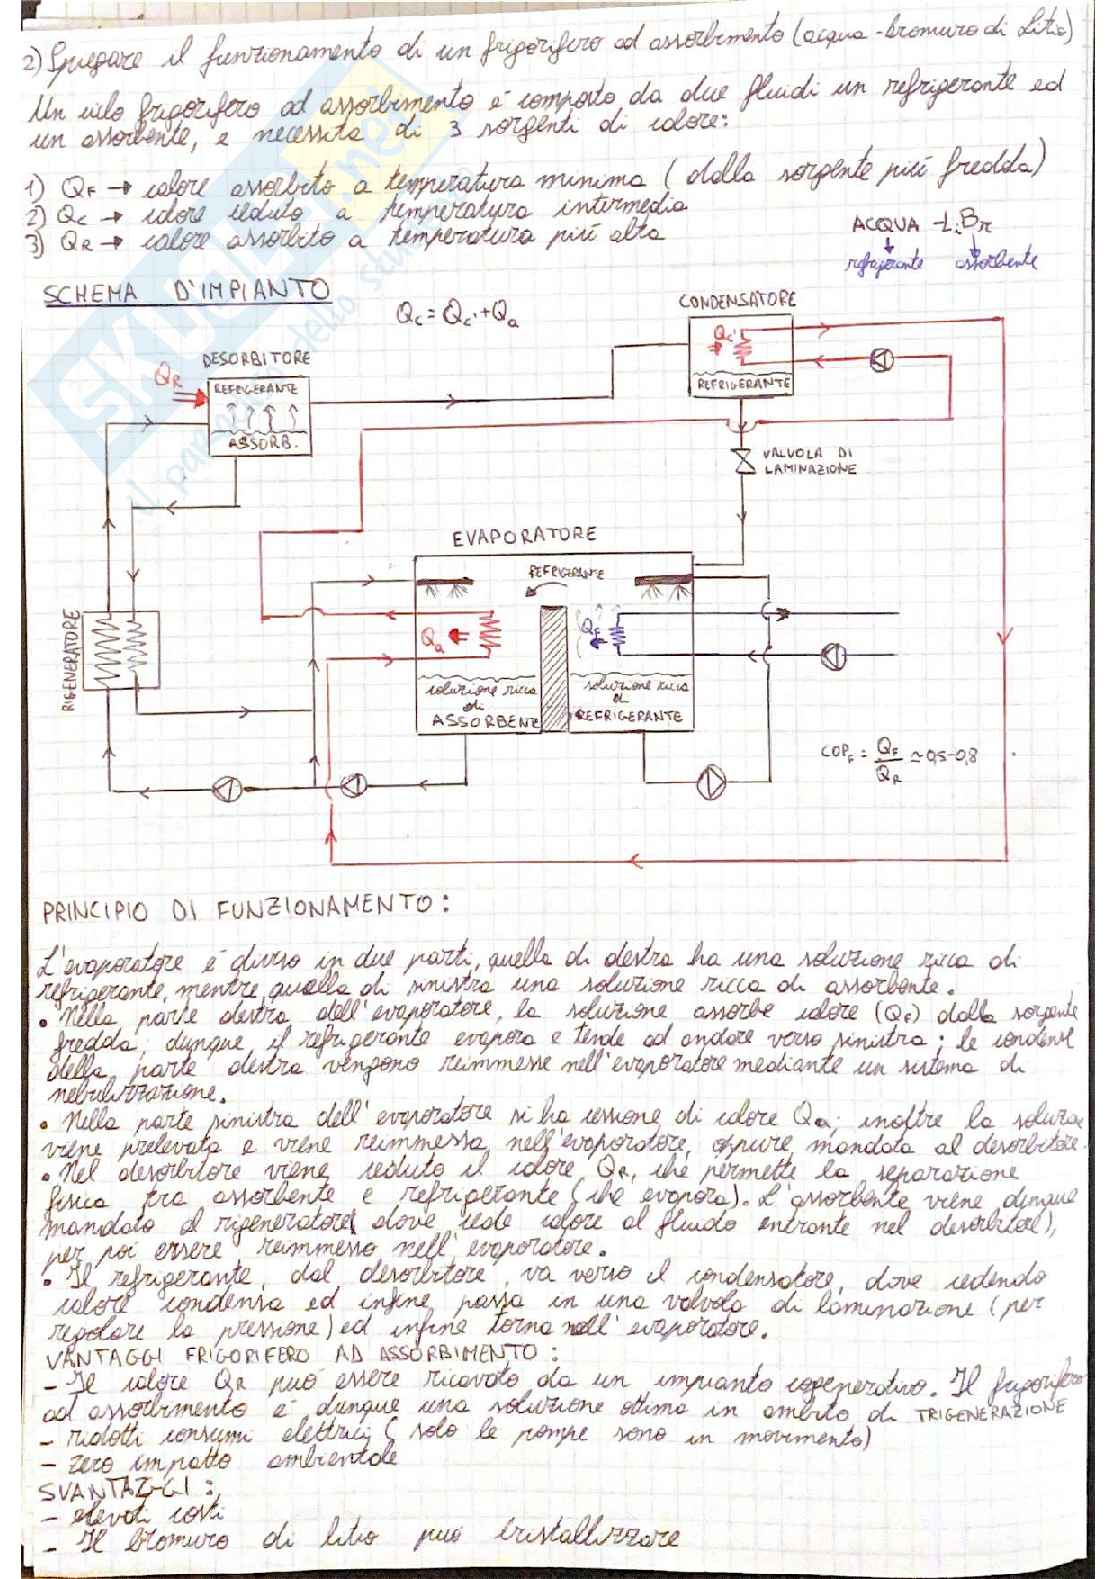 2) Spiegare il funzionamento di un frigorifero ad assorbimento (acqua-bromuro di Litio)
Un ciclo frigorifero ad assorbimento è composto da due fluidi un refrigerante ed
un assorbente, e necessita di 3 sorgenti di calore:
1) QF → calore assorbito a temperatura minima (dalla sorgente più fredda)
2) Qc → calore ceduto a temperatura intermedia
3) QR → calore assorbito a temperatura più alta
ACQUA - LiBr
refrigerante assorbente
SCHEMA D'IMPIANTO
Qc = Qc' + Qa
CONDENSATORE
Qc'
REFRIGERANTE
DESORBITORE
QR
REFRIGERANTE
ASSORB.
VALVOLA DI
LAMINAZIONE
EVAPORATORE
REFRIGERANTE
RIGENERATORE
Qa
QF
soluzione ricca
di
ASSORBENTE
soluzione ricca
di
REFRIGERANTE
COPF = QF/QR ≃ 0,5-0,8
PRINCIPIO DI FUNZIONAMENTO:
L'evaporatore è diviso in due parti, quella di destra ha una soluzione ricca di
refrigerante, mentre quella di sinistra una soluzione ricca di assorbente.
• Nella parte destra dell'evaporatore, la soluzione assorbe calore (QF) dalla sorgente
fredda; dunque, il refrigerante evapora e tende ad andare verso sinistra; le condense
della parte destra vengono reimmesse nell'evaporatore mediante un sistema di
nebulizzazione.
• Nella parte sinistra dell'evaporatore si ha cessione di calore Qa; inoltre la soluzione
viene prelevata e viene reimmessa nell'evaporatore, oppure mandata al desorbitore.
• Nel desorbitore viene ceduto il calore QR, che permette la separazione
fisica tra assorbente e refrigerante (che evapora). L'assorbente viene dunque
mandato al rigeneratore( dove cede calore al fluido entrante nel desorbitore),
per poi essere reimmesso nell'evaporatore.
• Il refrigerante, dal desorbitore, va verso il condensatore, dove cedendo
calore condensa ed infine passa in una valvola di laminazione (per
regolare la pressione) ed infine torna nell'evaporatore.
VANTAGGI FRIGORIFERO AD ASSORBIMENTO:
- Il calore QR può essere ricavato da un impianto cogenerativo. Il frigorifero
ad assorbimento è dunque una soluzione ottima in ambito di TRIGENERAZIONE
- ridotti consumi elettrici (solo le pompe sono in movimento)
- zero impatto ambientale
SVANTAGGI:
- elevati costi
- Il bromuro di litio può cristallizzare